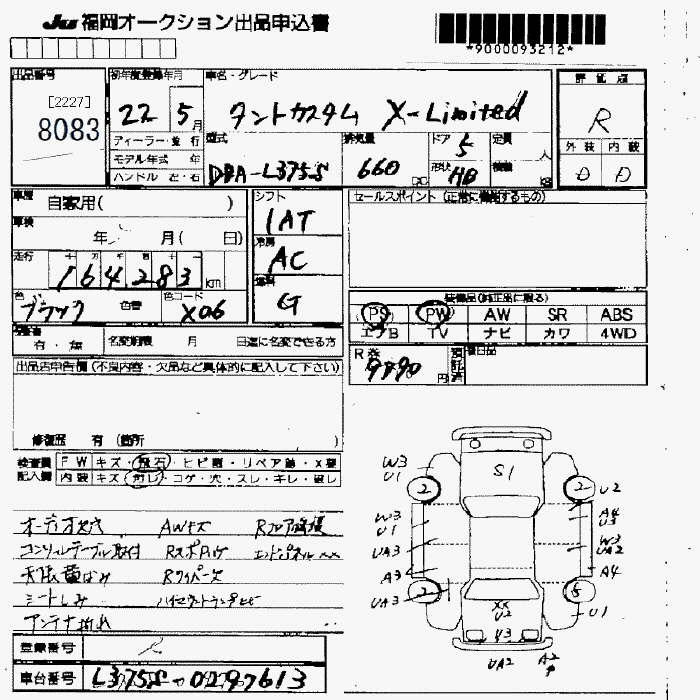 JU 福岡オークション出品申込書
*9000093212*
出品番号
[2227]
8083
初年度登録年月
22 5月
ディーラー・並行
モデル年式 年
ハンドル 左・右
車名・グレード
タントカスタム X-Limited
型式
DBA-L375S
排気量
660
ドア
5
形状
HB
定員
人
積載
評価点
R
外装 内装
D D
車歴
自家用( )
車検
年 月( 日)
走行
164283 km
色
ブラック
色替
色コード
X06
シフト
1AT
冷房
AC
燃料
G
セールスポイント (正常に機能するもの)
装備品(純正品に限る)
PS PW AW SR ABS
エアB TV ナビ カワ 4WD
有・無
名変期限 月 日迄に名変できる方
R券
9890円
預託済
出品店申告欄 (不良内容・欠品など具体的に記入して下さい)
修復歴 有 (箇所 )
検査員記入欄
FW キズ・飛石・ヒビ割・リペア跡・X要
内装 キズ・ワレ・コゲ・穴・スレ・キレ・破レ
オーディオ欠品 AWキズ Rフロア修復
コンソルテーブル取付 エンドパネルXX
天張黄ばみ
シートしみ
アンテナ折れ
登録番号
車台番号 L375S-0297613
W3
U1
2
S1
2
U2
W3
U1
A4
U3
UA3
W3
UA2
A3
A4
UA3
2
5
U1
XX
U2
U3
UA2
A2